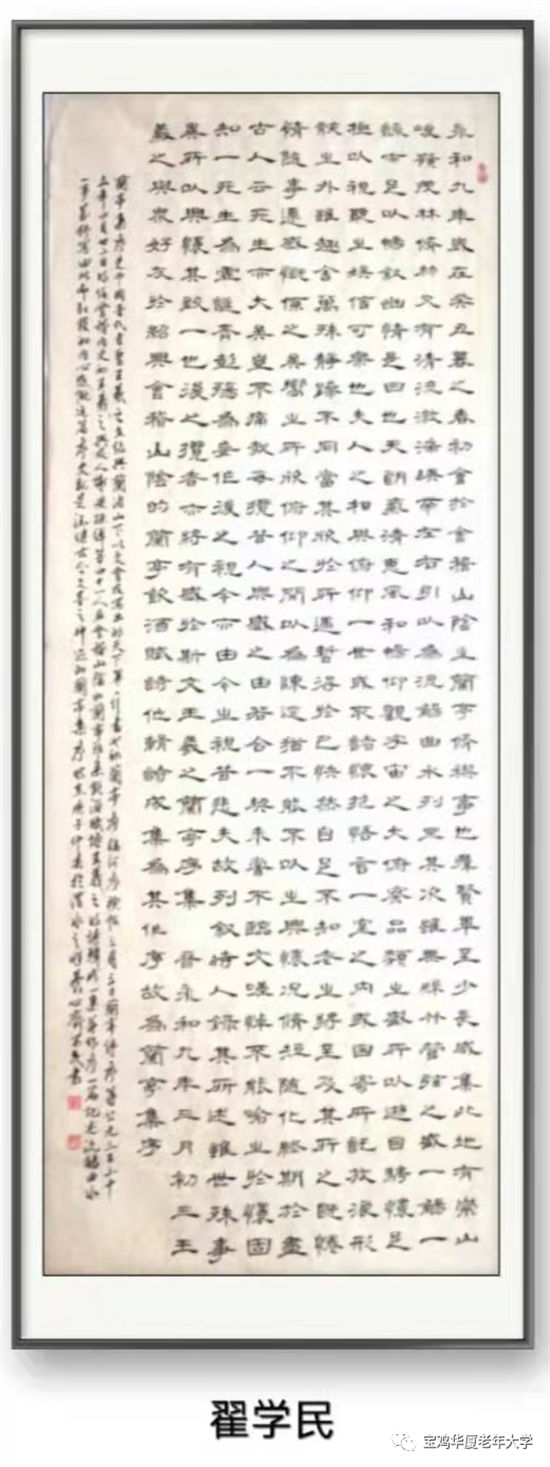 永和九年歲在癸丑暮之春初會於會稽山陰之蘭亭脩禊事也羣賢畢至少長咸集此地有崇山
峻嶺茂林脩竹又有清流激湍暎帶左右引以為流觴曲水列坐其次雖無絲竹管弦之盛一觴一
詠亦足以暢敘幽情是日也天朗氣清惠風和暢仰觀宇宙之大俯察品類之盛所以遊目騁懷足
極以視聽之娛信可樂也夫人之相與俯仰一世或取諸懷抱悟言一室之內或因寄所託放浪形
骸之外雖趣舍萬殊靜躁不同當其欣於所遇暫得於己快然自足不知老之將至及其所之既惓
情隨事遷感慨係之矣嚮之所欣俯仰之間以為陳迹猶不能不以之興懷況脩短隨化終期於盡
古人云死生亦大矣豈不痛哉每攬昔人興感之由若合一契未嘗不臨文嗟悼不能喻之於懷固
知一死生為虛誕齊彭殤為妄作後之視今亦由今之視昔悲夫故列敘時人錄其所述雖世殊事
異所以興懷其致一也後之攬者亦將有感於斯文王羲之蘭亭序集 晉永和九年三月初三王
羲之與眾好友於紹興會稽山陰的蘭亭飲酒賦詩他輯詩成集為其作序故為蘭亭集序
翟学民
宝鸡华厦老年大学